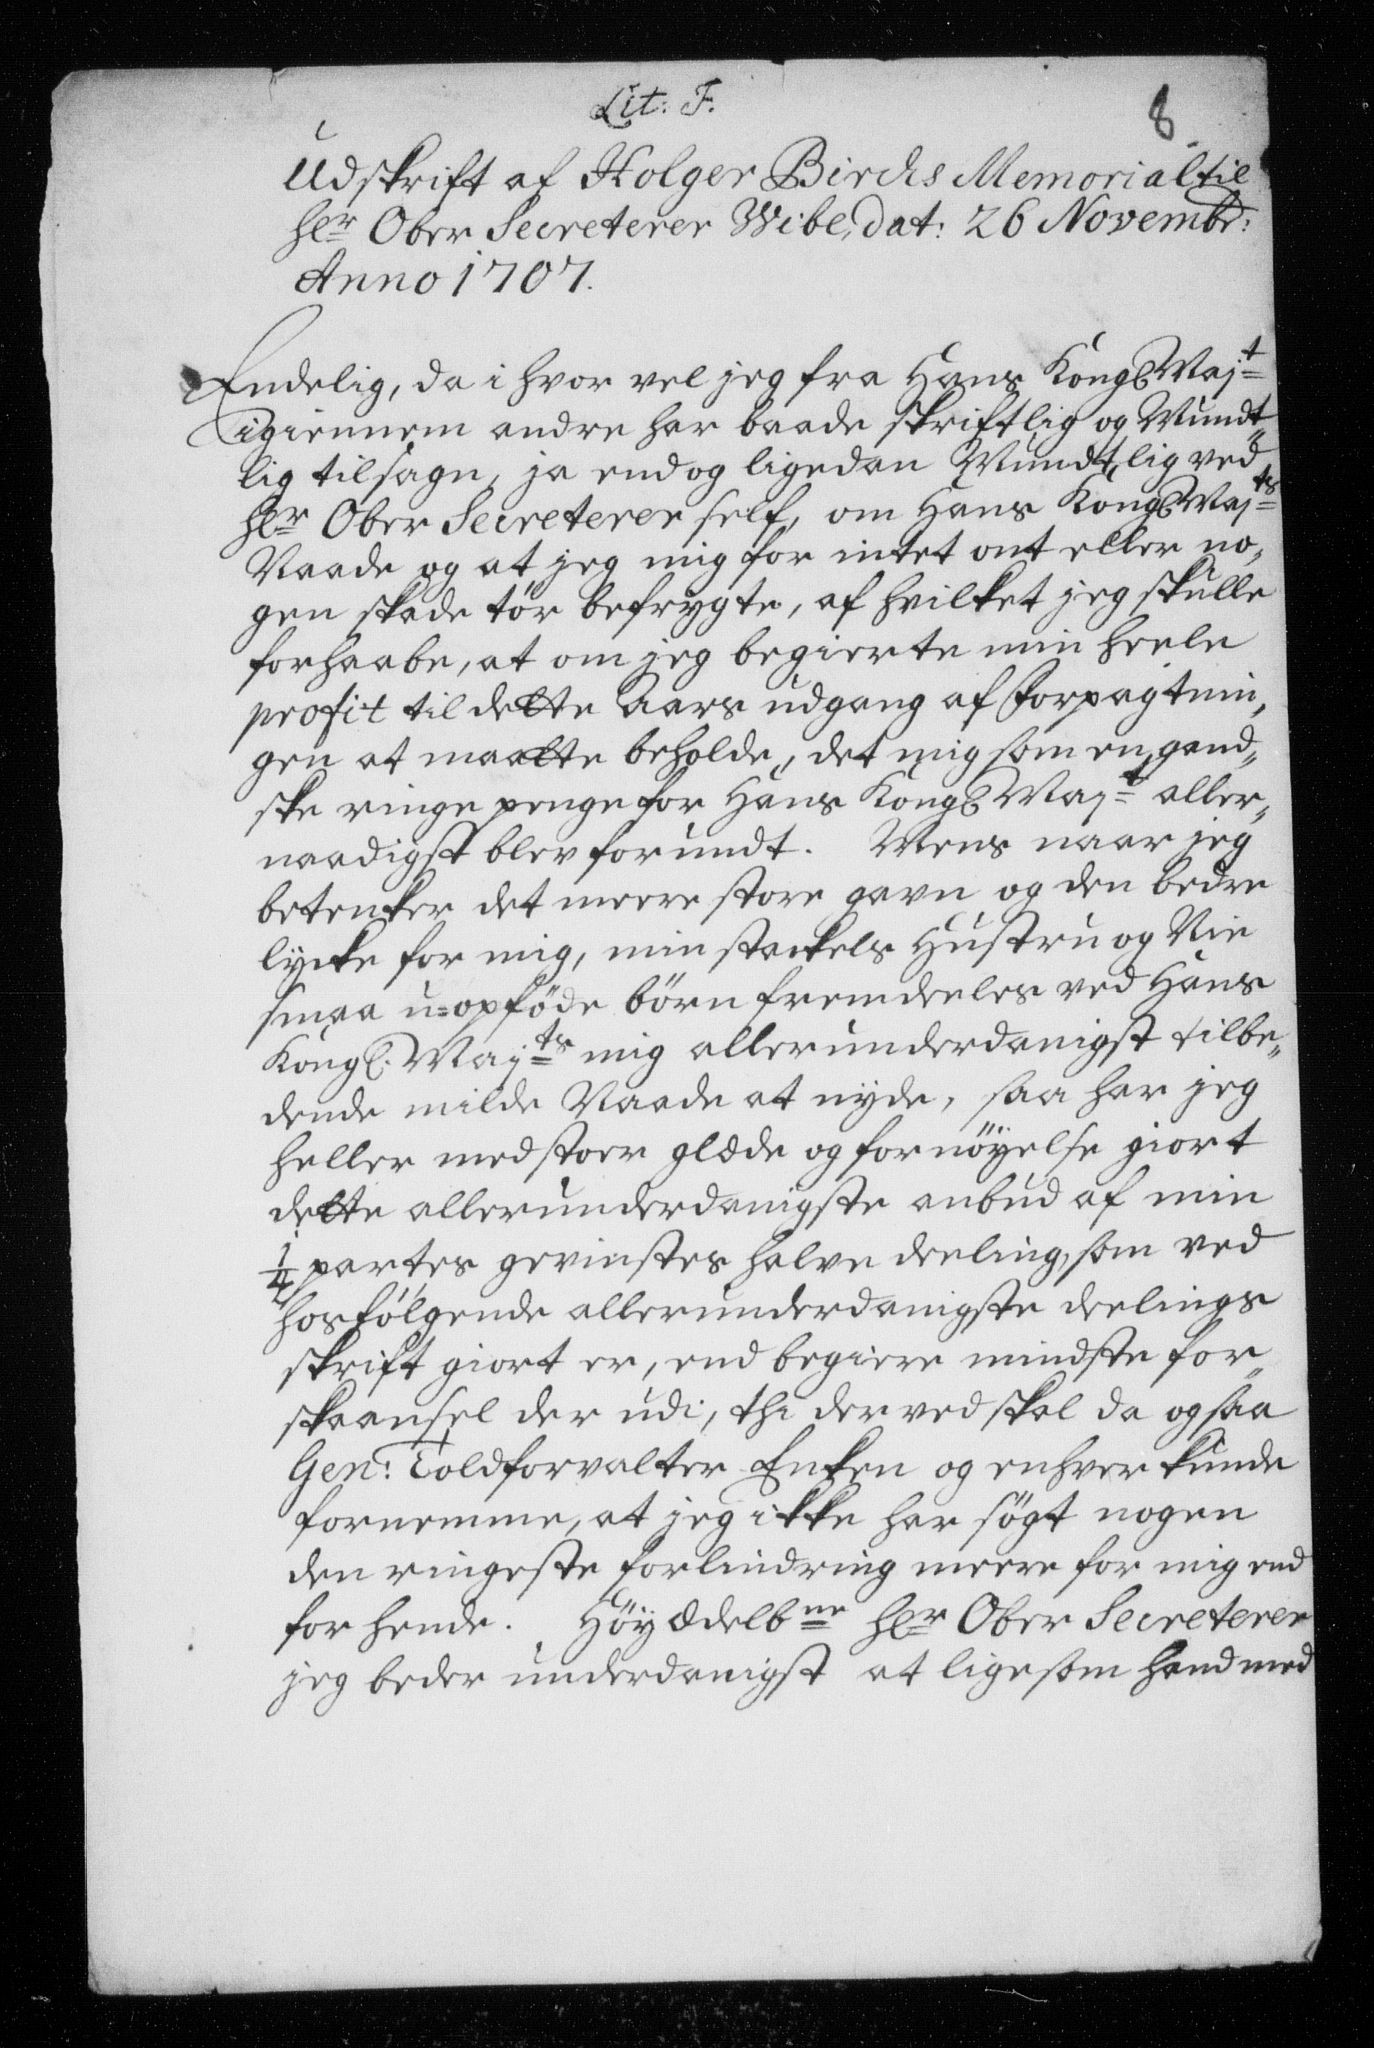 Lit: F.
8
Udskrift af Holger Birchs Memorial til
hr Ober Secreterer Wibe, dat: 26 Novembr:
Anno 1707.
Endelig, da i hvor vel jeg fra Hans Kongl Majt
igiennem andre har baade skriftlig og Mundt„
lig tilsagn, ja endog ligedan Mundtlig ved
hr Ober Secreterer self, om Hans Kongl Majts
Naade og at jeg mig for intet ont eller no„
gen skade tør befrygte, af hvilket jeg skulle
forhaabe, at om jeg begierte min heele
profit til dette Aars udgang af Forpagtnin„
gen at maatte beholde, det mig som en gand„
ske ringe penge for Hans Kongl Majt aller„
naadigst blev forundt. Mens naar jeg
betenker det meere store gavn og den bedre
lycke for mig, min stackels Hustru og Nie
smaa u=opföde börn fremdeeles ved Hans
Kongl. Majts mig allerunderdanigst tilbe„
dende milde Naade at nyde, saa har jeg
heller med stoer glæde og fornöyelse giort
dette allerunderdanigste anbud af min
1/4 partes gevinstes halve deeling, som ved
hosfölgende allerunderdanigste deelings
skrift giort er, end begiere mindste for„
skaansel der udi, thi derved skal da og saa
Gen: Toldforvalter Enken og enhver kunde
fornemme, at jeg ikke har sögt nogen
den ringeste forlindring meere for mig end
for hende. Höy Ædelbne hr Ober Secreterer
jeg beder underdanigst at ligesom hand med